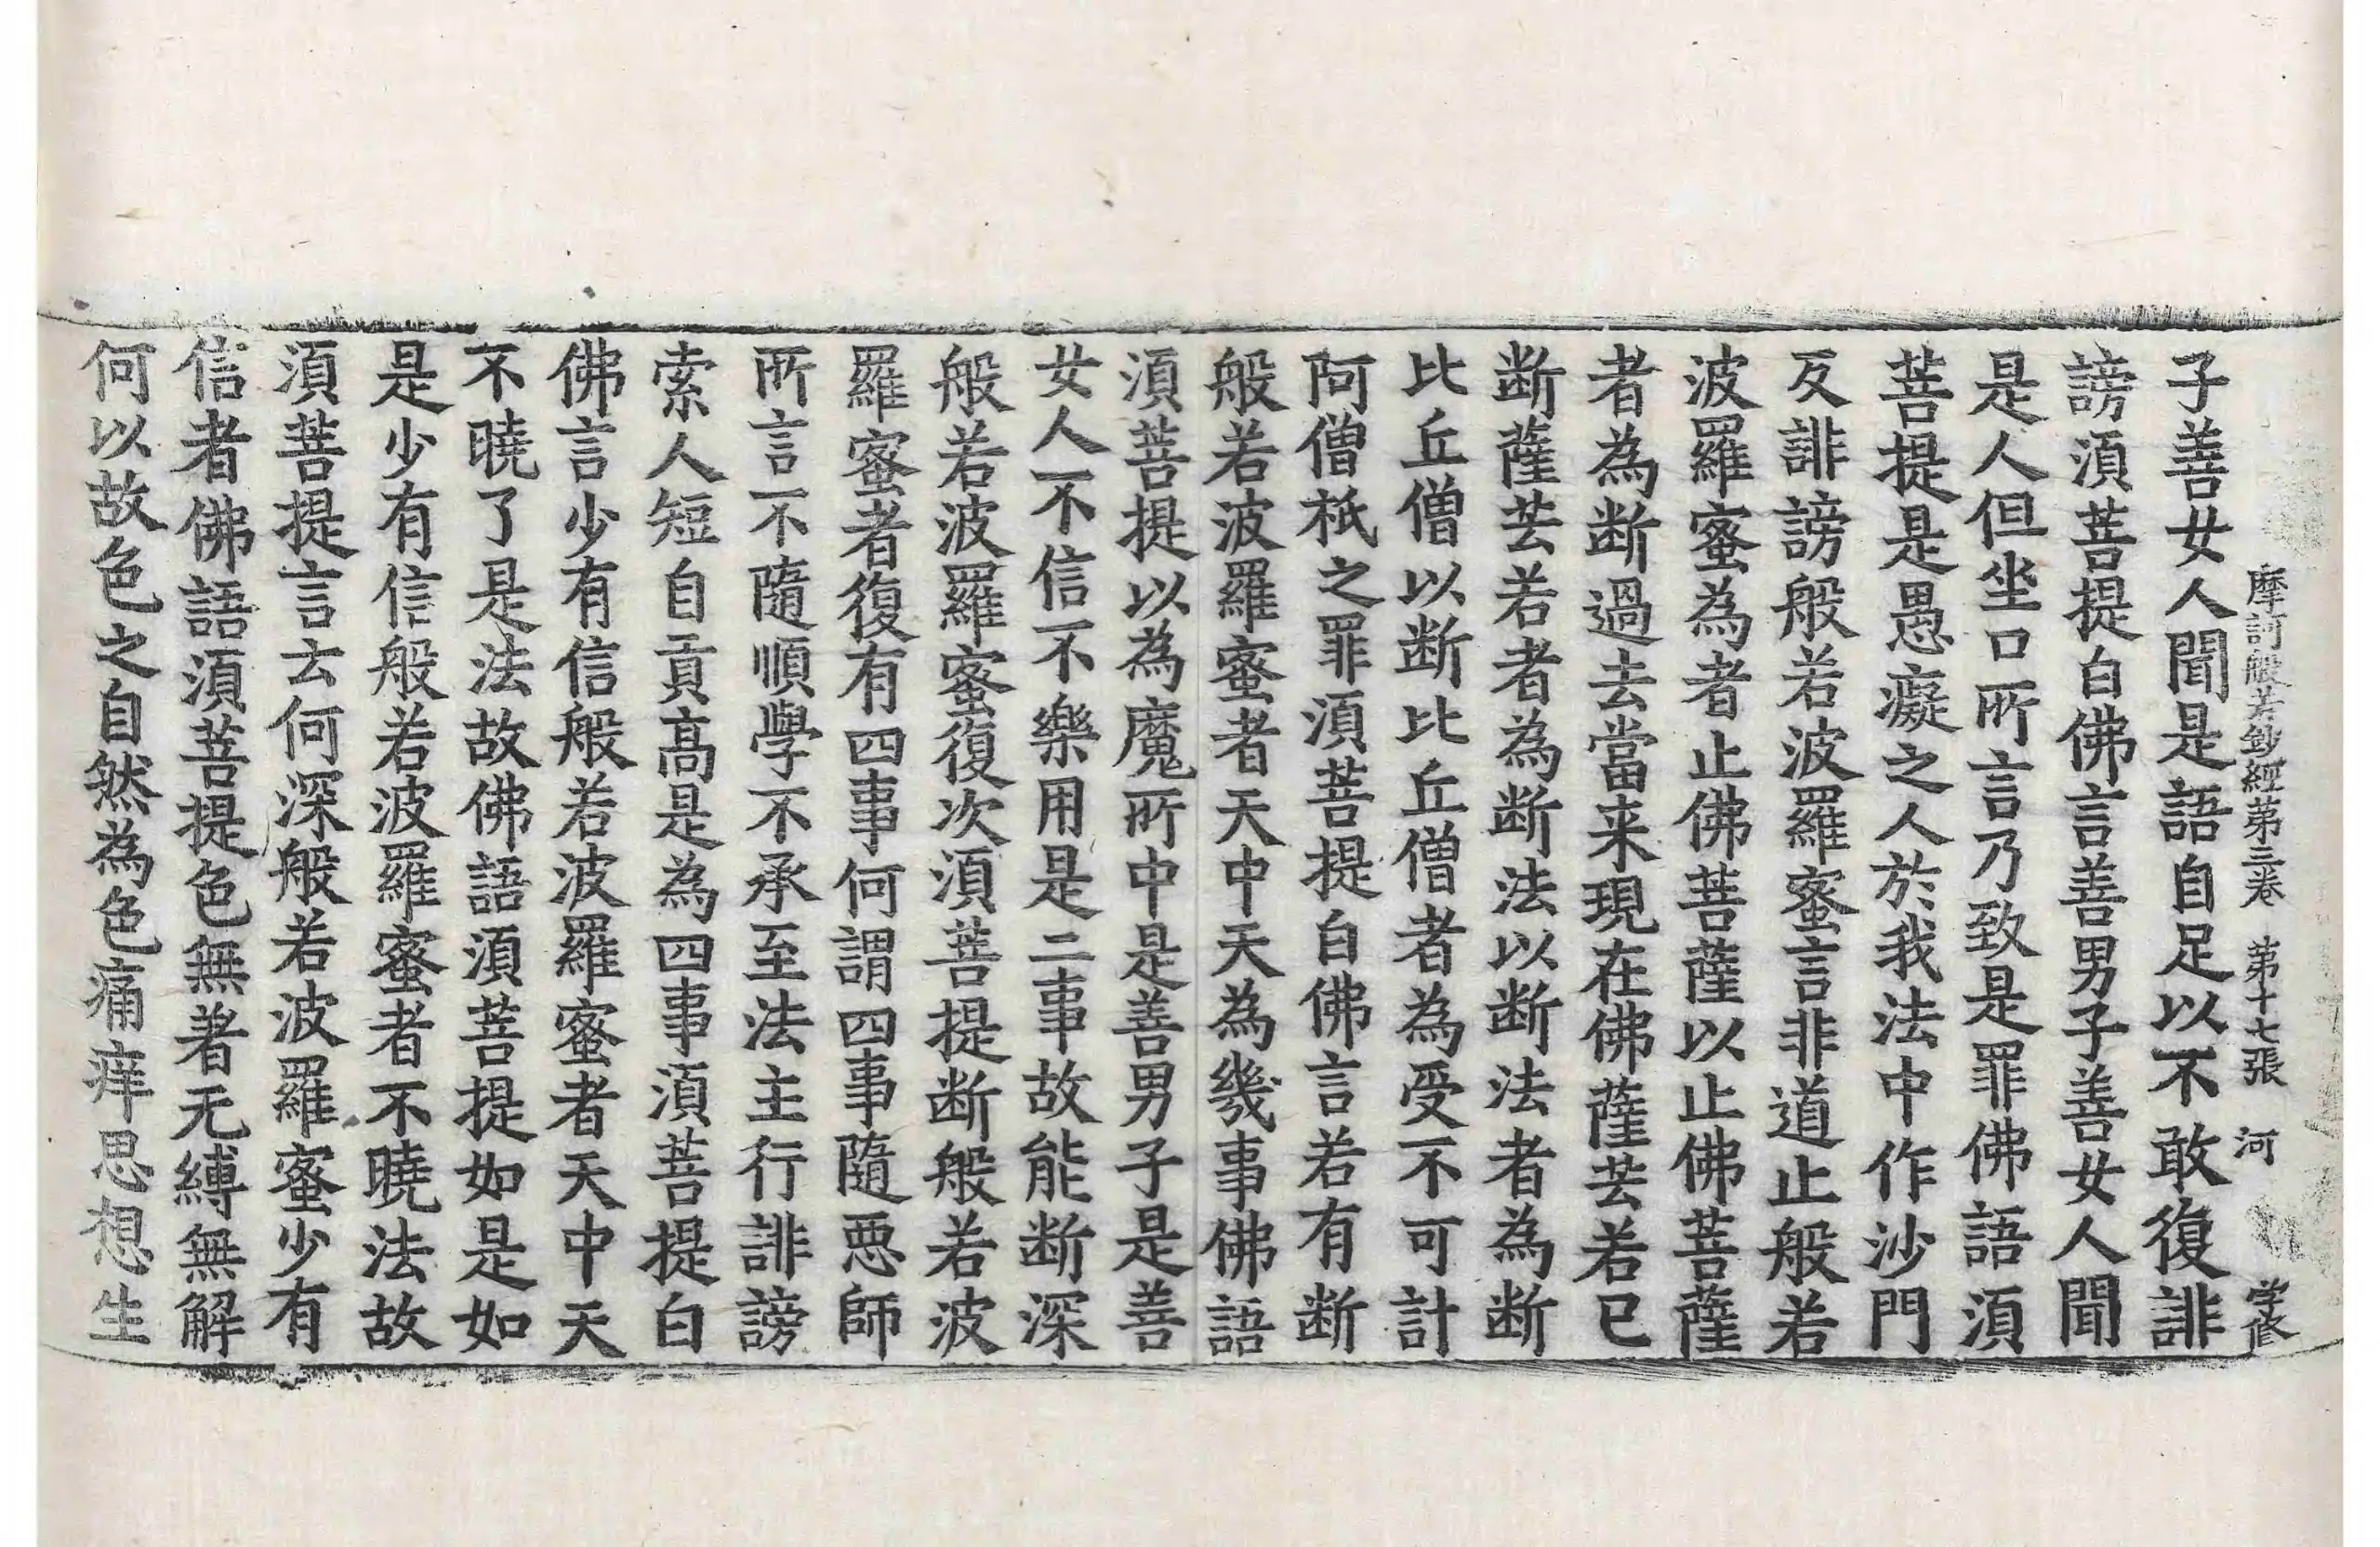 摩訶般若鈔經第三卷 第十七張 河 学修
子善女人聞是語自足以不敢復誹
謗須菩提白佛言善男子善女人聞
是人但坐口所言乃致是罪佛語須
菩提是愚癡之人於我法中作沙門
反誹謗般若波羅蜜言非道止般若
波羅蜜為者止佛菩薩以止佛菩薩
者為断過去當来現在佛薩芸若已
断薩芸若者為断法以断法者為断
比丘僧以断比丘僧者為受不可計
阿僧祇之罪須菩提白佛言若有断
般若波羅蜜者天中天為幾事佛語
須菩提以為魔所中是善男子是善
女人不信不樂用是二事故能断深
般若波羅蜜復次須菩提断般若波
羅蜜者復有四事何謂四事隨惡師
所言不隨順學不承至法主行誹謗
索人短自貢高是為四事須菩提白
佛言少有信般若波羅蜜者天中天
不曉了是法故佛語須菩提如是如
是少有信般若波羅蜜者不曉法故
須菩提言云何深般若波羅蜜少有
信者佛語須菩提色無著无縛無解
何以故色之自然為色痛痒思想生